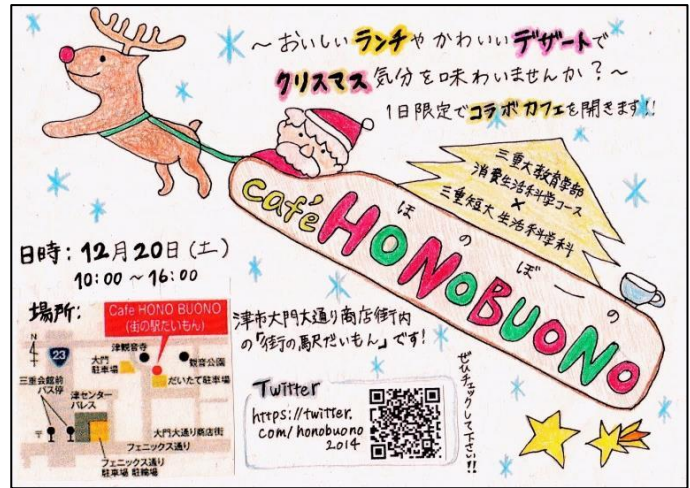 ～おいしいランチやかわいいデザートで
クリスマス気分を味わいませんか？～
1日限定でコラボカフェを開きます!!
三重大教育学部
消費生活科学コース
×
三重短大 生活科学科
café HONOBUONO
ほのぼーの
日時：12月20日（土）
10:00～16:00
場所：
Cafe HONO BUONO
(街の駅だいもん)
N
23
津観音寺
大門
駐車場
観音公園
だいたて駐車場
三重会館前
バス停
津センター
パレス
〒
大門大通り商店街
フェニックス通り
フェニックス通り
駐車場 駐輪場
津市大門大通り商店街内
の「街の駅だいもん」です！
Twitter
https://twitter.
com/honobuono
2014
ぜひチェックして下さい!!